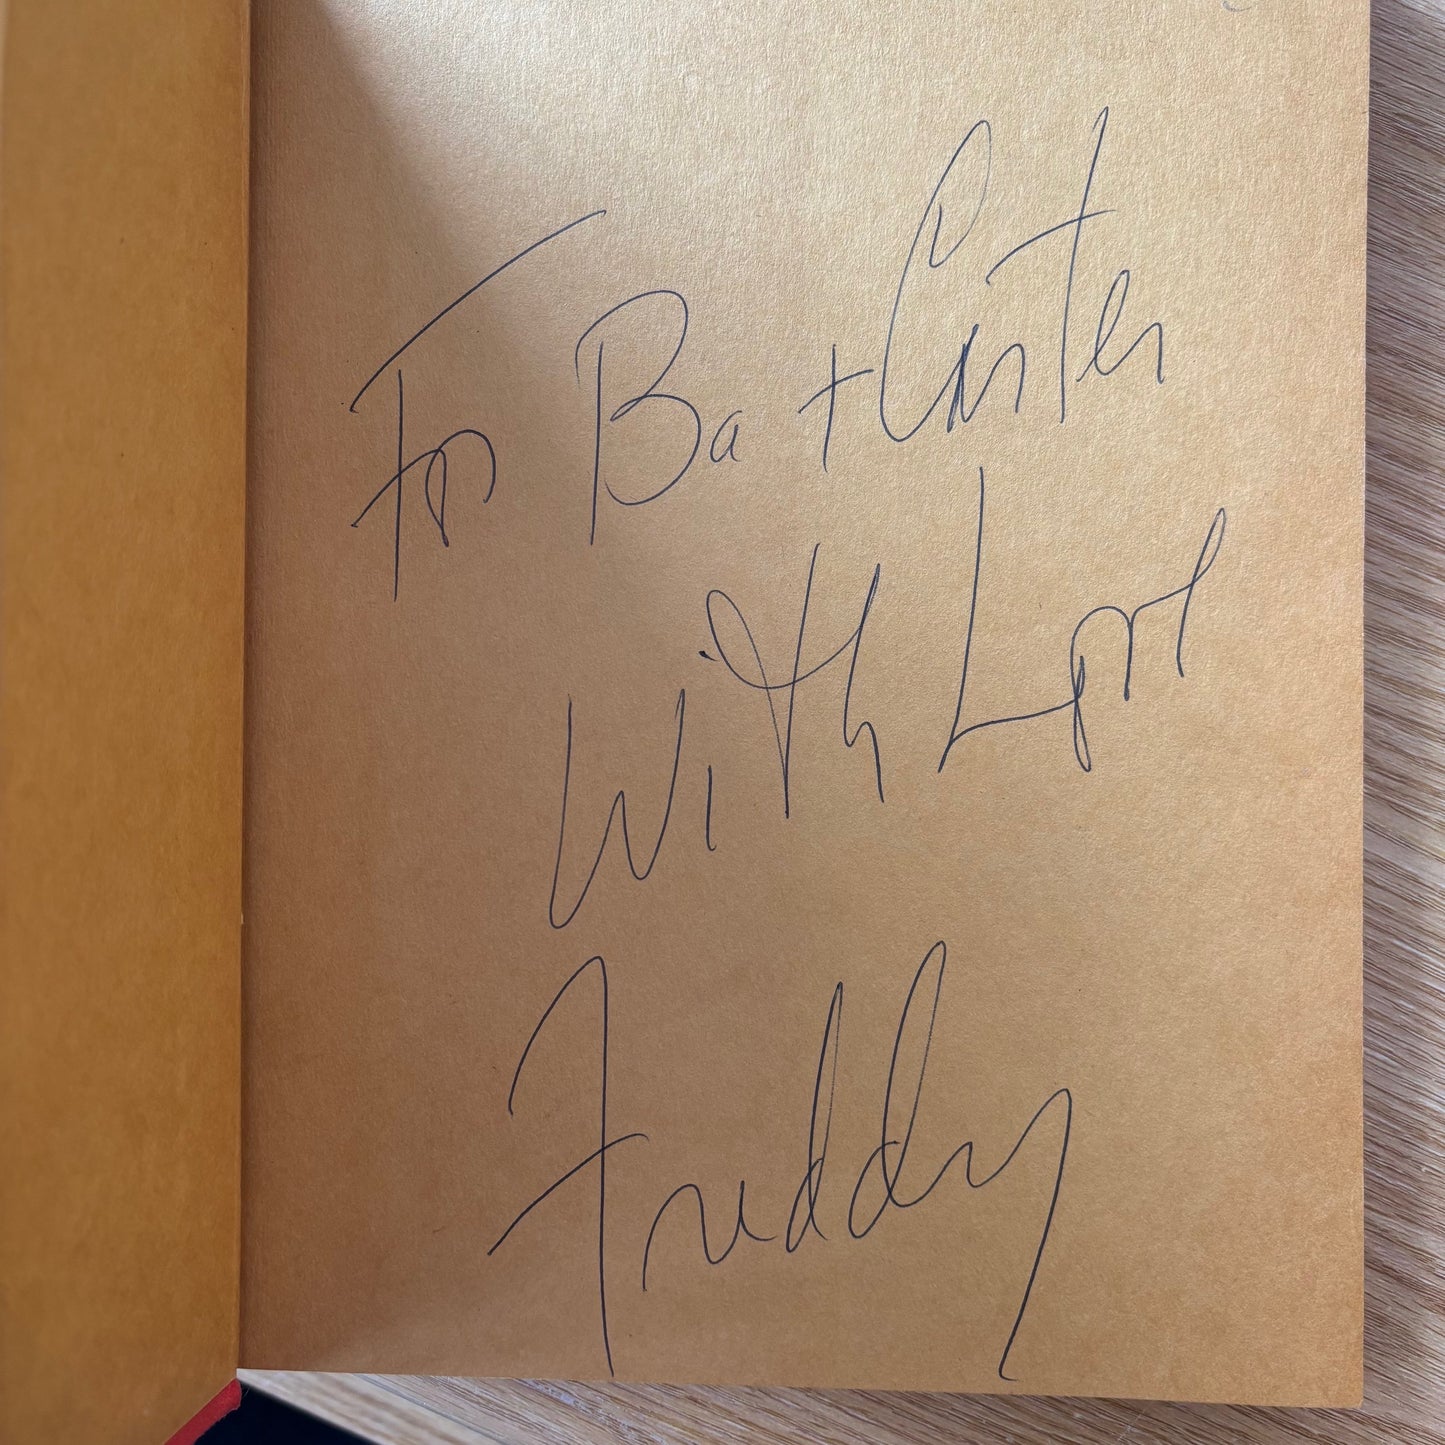 For Ba + Carter
With Love
Freddy